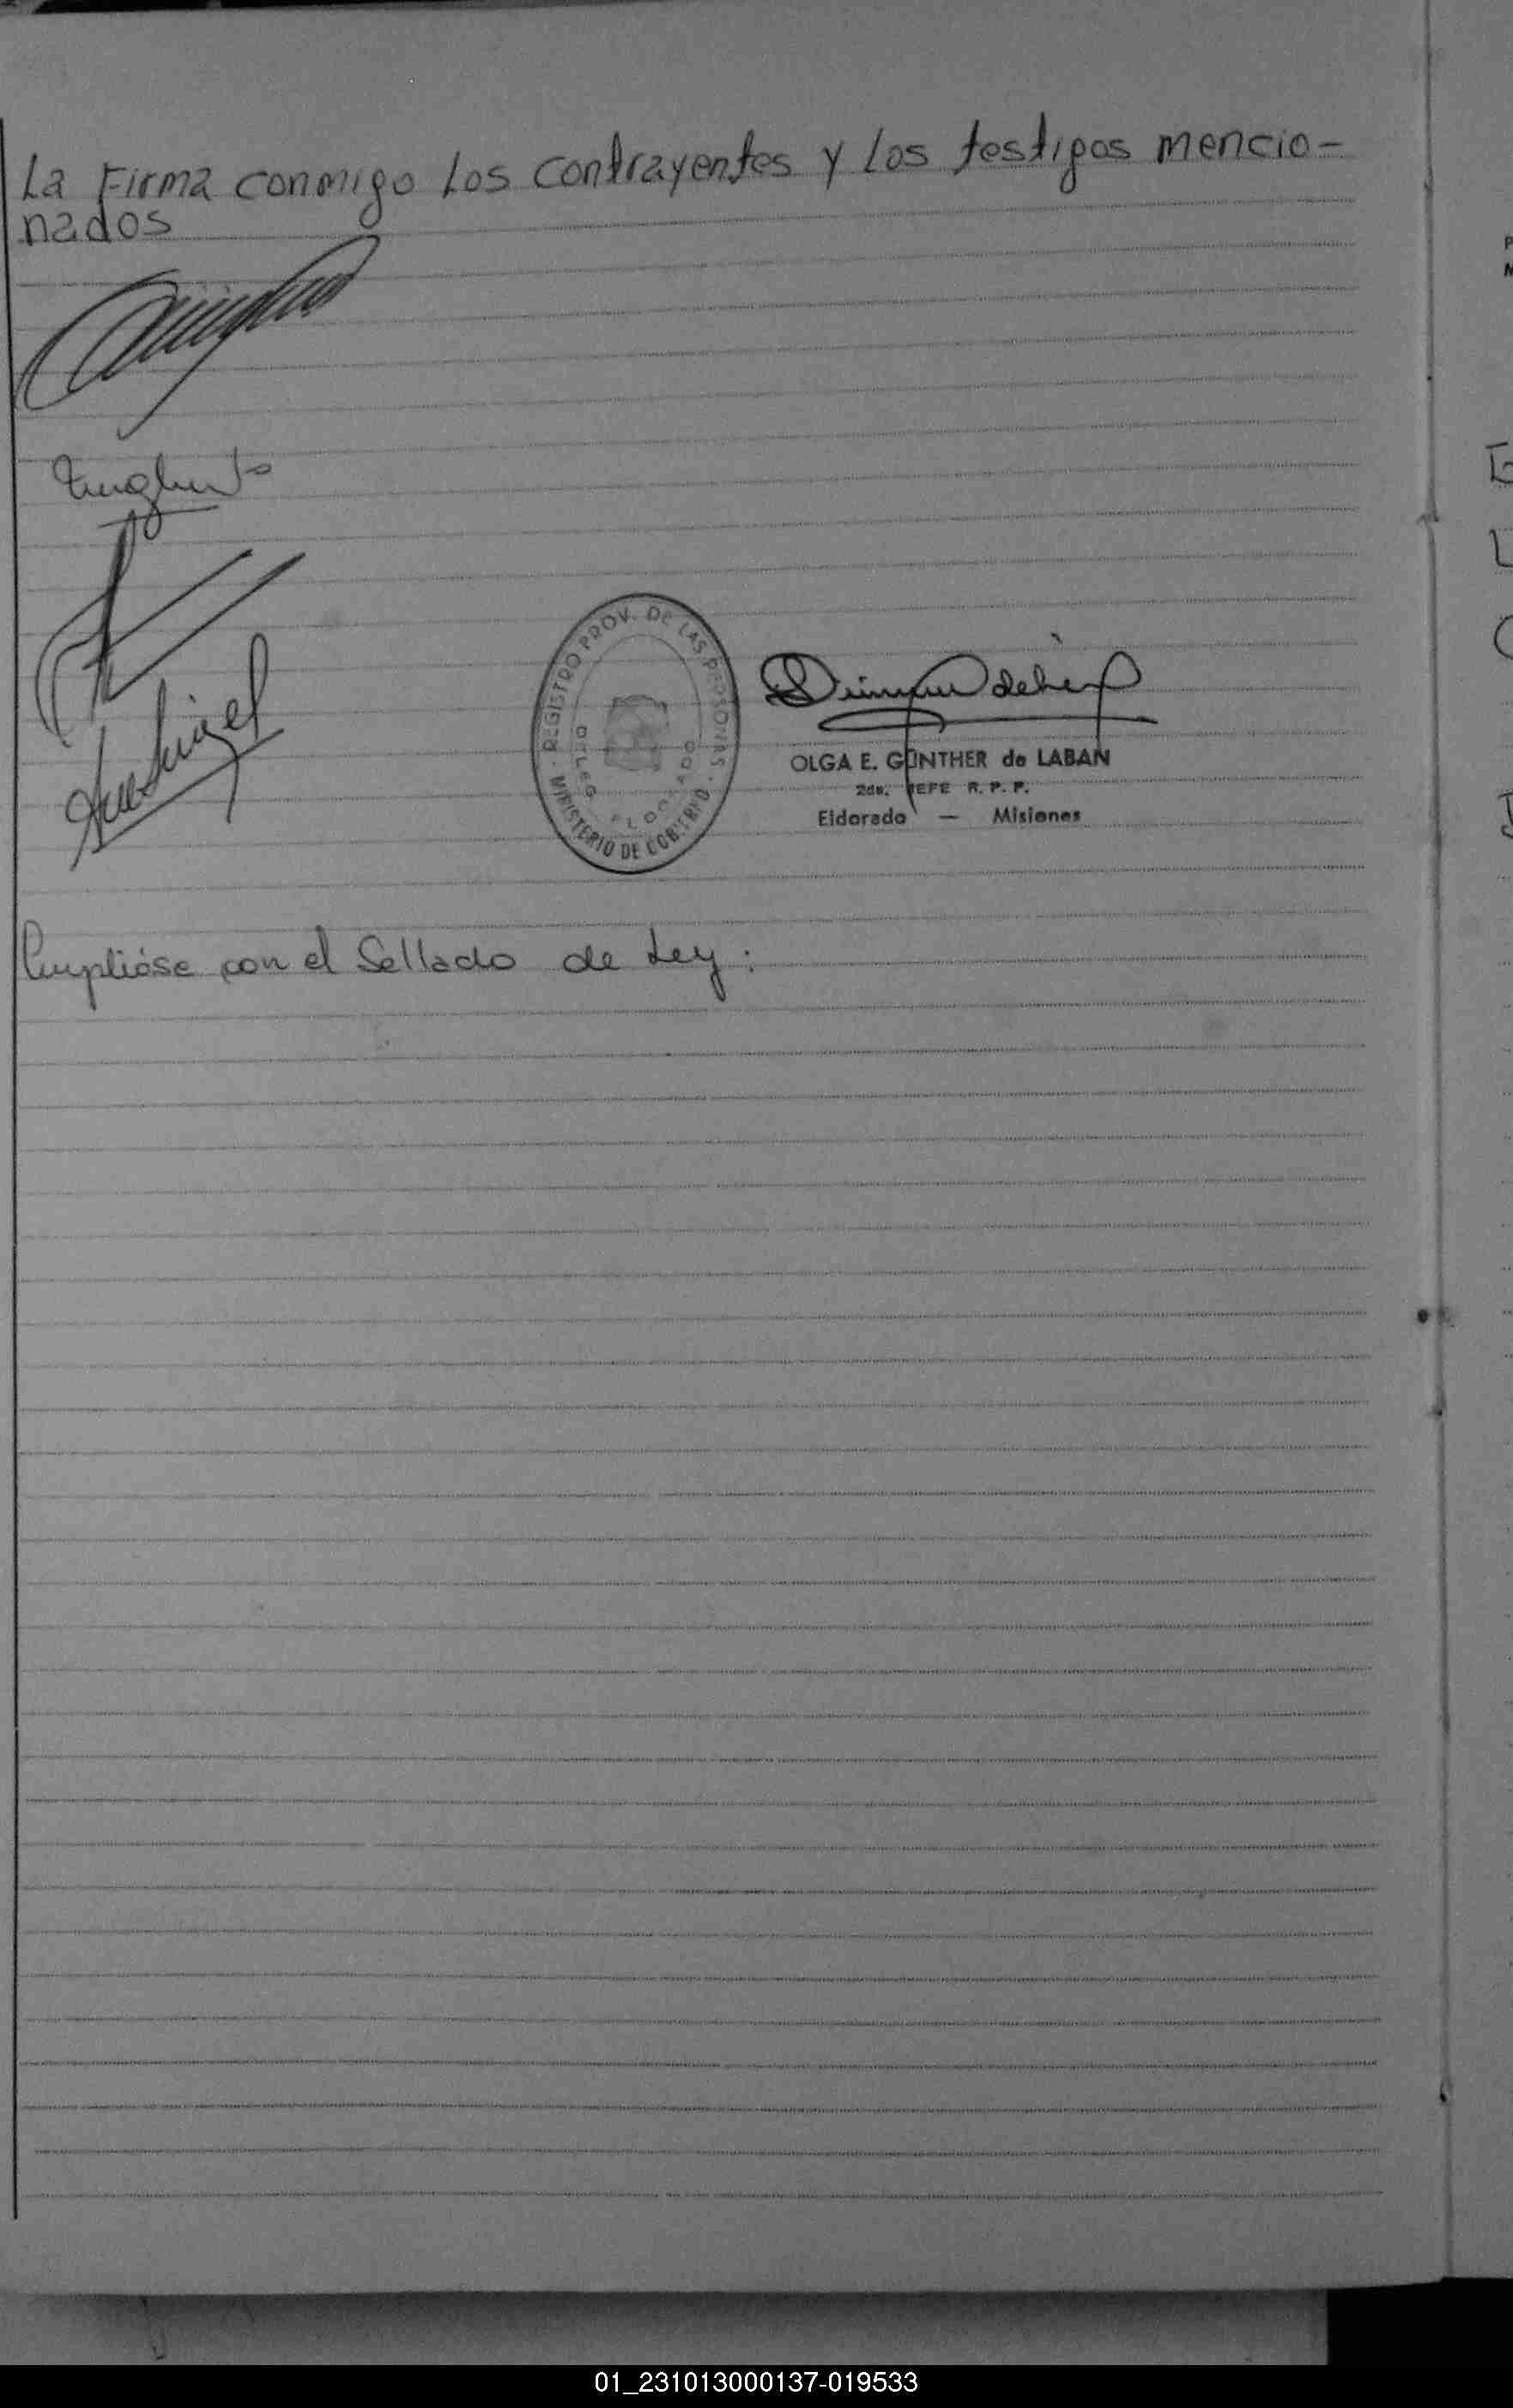 La Firma conmigo Los contrayentes y Los testigos mencio-
nados
REGISTRO PROV. DE LAS PERSONAS
MINISTERIO DE GOBIERNO
OLGA E. GÜNTHER de LABAN
2da. JEFE R. P. P.
Eldorado — Misiones
Cumplióse con el Sellado de Ley:
01_231013000137-019533